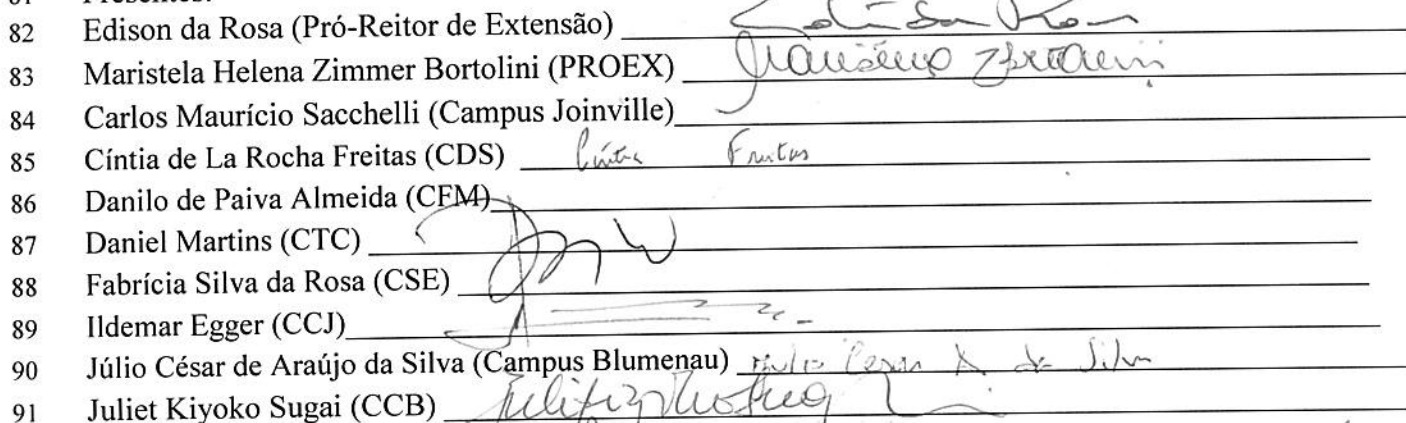 82 Edison da Rosa (Pró-Reitor de Extensão)
83 Maristela Helena Zimmer Bortolini (PROEX)
84 Carlos Maurício Sacchelli (Campus Joinville)
85 Cíntia de La Rocha Freitas (CDS) Cíntia Freitas
86 Danilo de Paiva Almeida (CFM)
87 Daniel Martins (CTC)
88 Fabrícia Silva da Rosa (CSE)
89 Ildemar Egger (CCJ)
90 Júlio César de Araújo da Silva (Campus Blumenau) Julio Cesar A da Silva
91 Juliet Kiyoko Sugai (CCB)